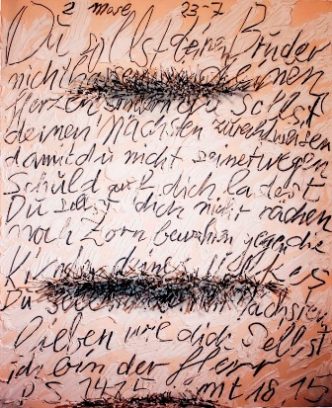 2 Mose 23-7
Du sollst deinen Bruder
nicht hassen in deinem
Herzen sondern du sollst
deinen Nächsten zurechtweisen
damit du nicht seinetwegen
Schuld auf dich ladest
Du sollst dich nicht rächen
noch Zorn bewahren gegen die
Kinder deines Volkes
Du sollst deinen Nächsten
Lieben wie dich selbst
ich bin der Herr
mt 18.15